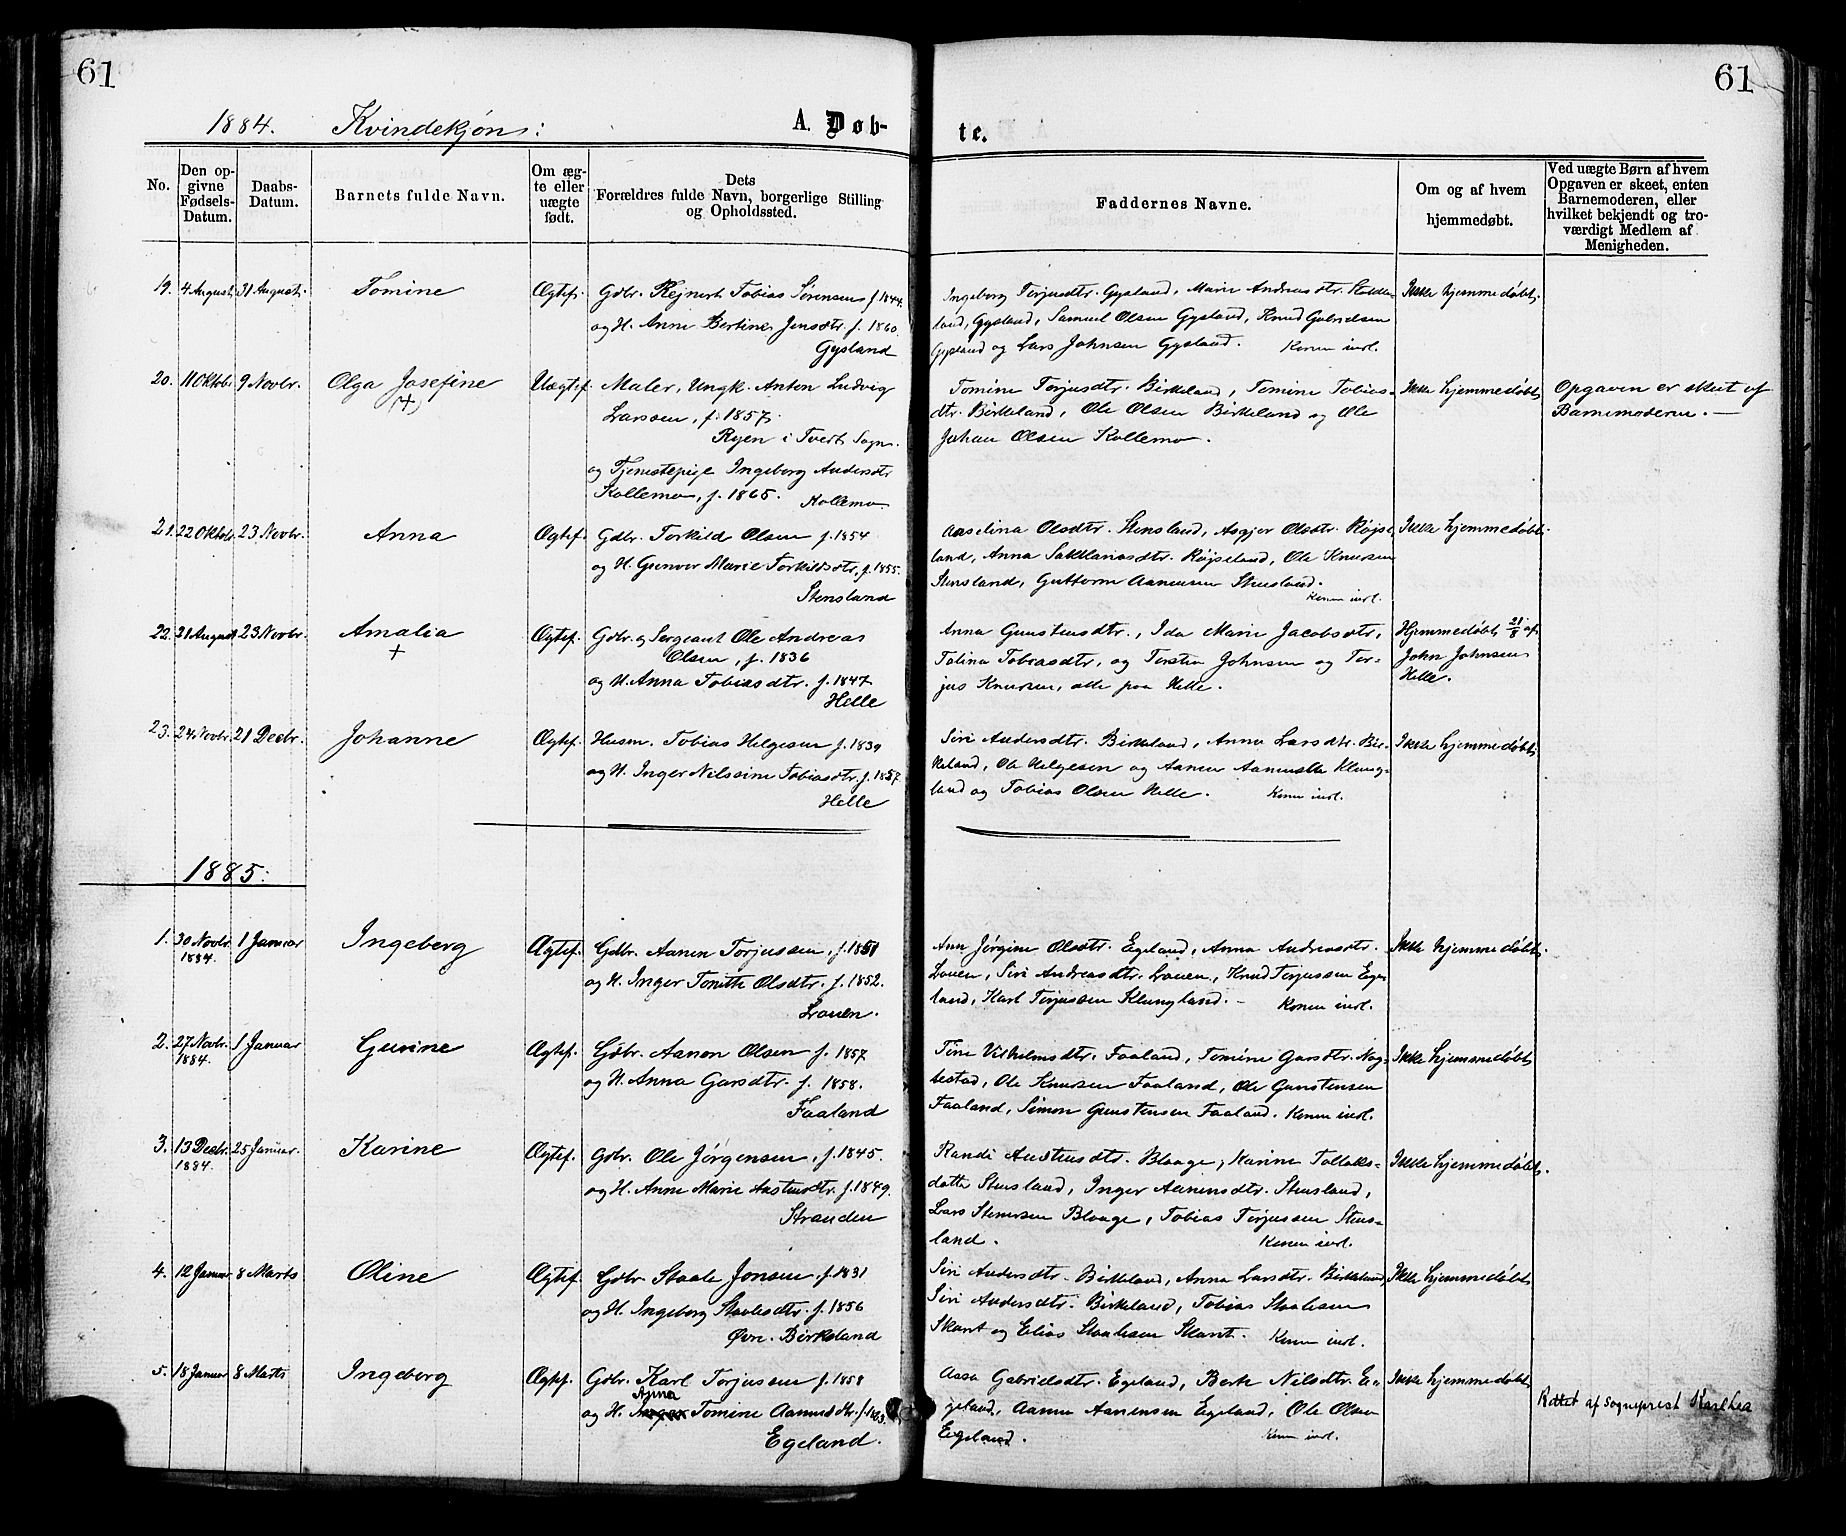 61
61
1884. Kvindekjøn:
A. Døb-
te.
No.
Den op-
givne
Fødsels-
Datum.
Daabs-
Datum.
Barnets fulde Navn.
Om æg-
te eller
uægte
født.
Dets
Forældres fulde Navn, borgerlige Stilling
og Opholdssted.
Faddernes Navne.
Om og af hvem
hjemmedøbt.
Ved uægte Børn af hvem
Opgaven er skeet, enten
Barnemoderen, eller
hvilket bekjendt og tro-
værdigt Medlem af
Menigheden.
19. 4 August 31 August. Tomine Ægtef. Gdbr. Rejnert Tobias Sørensen f. 1844.
og H. Anne Bertine Jensdtr. f. 1860
Gysland
Ingeborg Terjusdtr. Gysland, Marie Andreasdtr.
land, Gysland, Samuel Olsen Gysland, Knud Gabrielsen
Gysland og Lars Johnsen Gysland. Konen indl.
Ikke hjemmedøbt.
20. 11 Oktobr. 9 Novbr. Olga Josefine Uægtef. Maler, Ungk. Anton Ludvig
(+)
Larssen, f. 1857.
Ryen i Tveit Sogn.
og Tjenestepige Ingeborg Andersdtr
Kollemo, f. 1865. Kollemo
Tomine Torjusdtr. Birkeland, Tomine Tobias-
dtr. Birkeland, Ole Olsen Birkeland og Ole
Johan Olsen Kollemo.
Ikke hjemmedøbt
Opgaven er skeet af
Barnemoderen. —
21. 22 Oktobr. 23 Novbr. Anna Ægtef. Gdbr. Torkild Olsen f. 1854
og H. Gunvor Marie Torkildsdtr. f. 1855.
Stensland
Aaselina Olsdtr. Stensland, Asgjer Olsdtr. Røjse-
land, Anna Røjseland, Ole Knudsen
Stensland, Guttorm Aanensen Stensland.
Konen indl.
Ikke hjemmedøbt.
22. 21 August 23 Novbr. Amalia Ægtef. Gdbr. og Sergeant Ole Andreas
+
Olsen, f. 1836
og H. Anna Tobiasdtr. f. 1847
Helle
Anna Gunstensdtr., Ida Marie Jacobsdtr.,
Tolina Tobiasdtr, og Torsten Johnsen og Ter-
jus Knudsen, alle paa Helle.
Hjemmedøbt 21/8 af
John Johnsen
Helle.
23. 24 Novbr. 21 Decbr. Johanne Ægtef. Husm. Tobias Helgesen f. 1839
og H. Inger Nilssine Tobiasdtr. f. 1857.
Helle
Siri Andersdtr. Birkeland, Anna Larsdtr. Bir-
keland, Ole Helgesen og Aanen Klung-
land og Tobias Olsen Helle. Konen indl.
Ikke hjemmedøbt
1885:
1. 30 Novbr. 1 Januar Ingeberg Ægtef. Gdbr. Aanen Torjussen, f. 1851
1884.
og H. Inger Tonette Olsdtr. f. 1852.
Lauen.
Ann Jørgine Olsdtr. Egeland, Anna Andreasdtr.
Lauen, Siri Andreasdtr. Lauen, Knud Terjussen Ege-
land, Karl Terjussen Klungland. - Konen indl.
Ikke hjemmedøbt.
2. 27 Novbr. 1 Januar Gurine Ægtef. Gdbr. Aanen Olsen f. 1857
1884.
og H. Anna Garsdtr. f. 1858.
Faaland
Tine Vilhelmsdtr. Faaland, Tomine Garsdtr. Nog-
bestad, Ole Knudsen Faaland, Ole Gunstensen
Faaland, Simon Gunstensen Faaland. Konen indl.
Ikke hjemmedøbt
3. 13 Decbr. 25 Januar. Karine Ægtef. Gdbr. Ole Jørgensen, f. 1845.
1884.
og H. Anne Marie Austensdtr. f. 1849.
Stranden
Randi Austensdtr. Blaage, Karine Tollaks-
datter Stensland, Inger Aanensdtr. Stensland,
Lars Blaage, Tobias Terjussen Stens-
land. Konen indl.
Ikke hjemmedøbt.
4. 12 Januar 8 Marts Oline Ægtef. Gdbr. Staale Jonsen f. 1831
og H. Ingeborg Staalesdtr. f. 1856
Øvre Birkeland
Siri Andersdtr. Birkeland, Anna Larsdtr. Birkeland,
Siri Andersdtr. Birkeland, Tobias Staalesen
Skant og Elias Staalesen Skant. Konen indl.
Ikke hjemmedøbt
5. 18 Januar 8 Marts Ingeborg Ægtef. Gdbr. Karl Torjussen f. 1858
Anna
og H. Inger Tomine Aanensdtr. f.
Egeland.
Aasa Gabrielsdtr. Egeland, Berte Nilsdtr. E-
geland, Aanen Aanensen Egeland, Ole Olsen
Egeland. Konen indl.
Ikke hjemmedøbt
Rettet af sogneprest Karl Lea